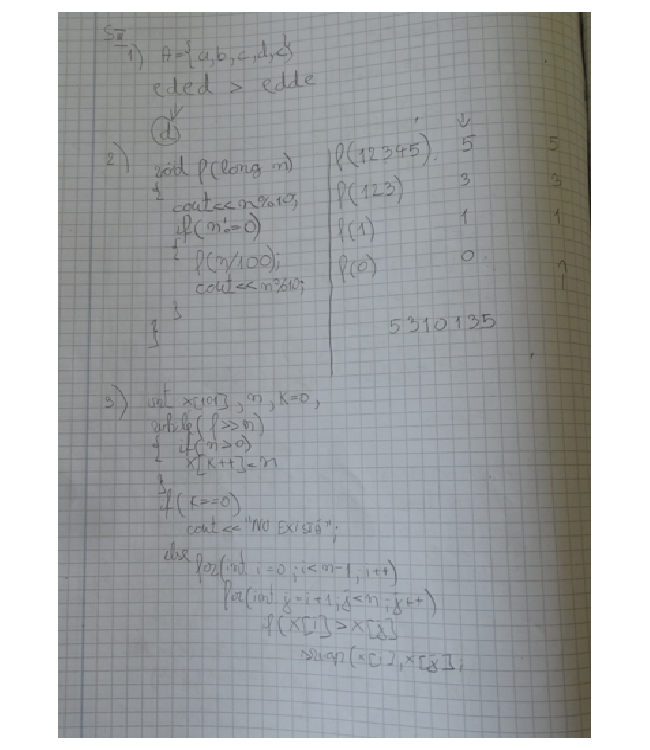 S II
1) A={a,b,c,d,e}
eded > edde
d
2) void f(long n)
{
cout<<n%10;
if(n!=0)
{
f(n/100);
cout<<n%10;
}
}
f(12345) 5 5
f(123) 3 3
f(1) 1 1
f(0) 0
5310135
3) int x[101], n, K=0,
while(f>>n)
{ if(n>0)
x[K++]=n
}
if(K==0)
cout<<"No Exista";
else
for(int i=0;i<n-1,i++)
for(int j=i+1;j<n;j++)
if(x[i]>x[j]
swap(x[i],x[j],